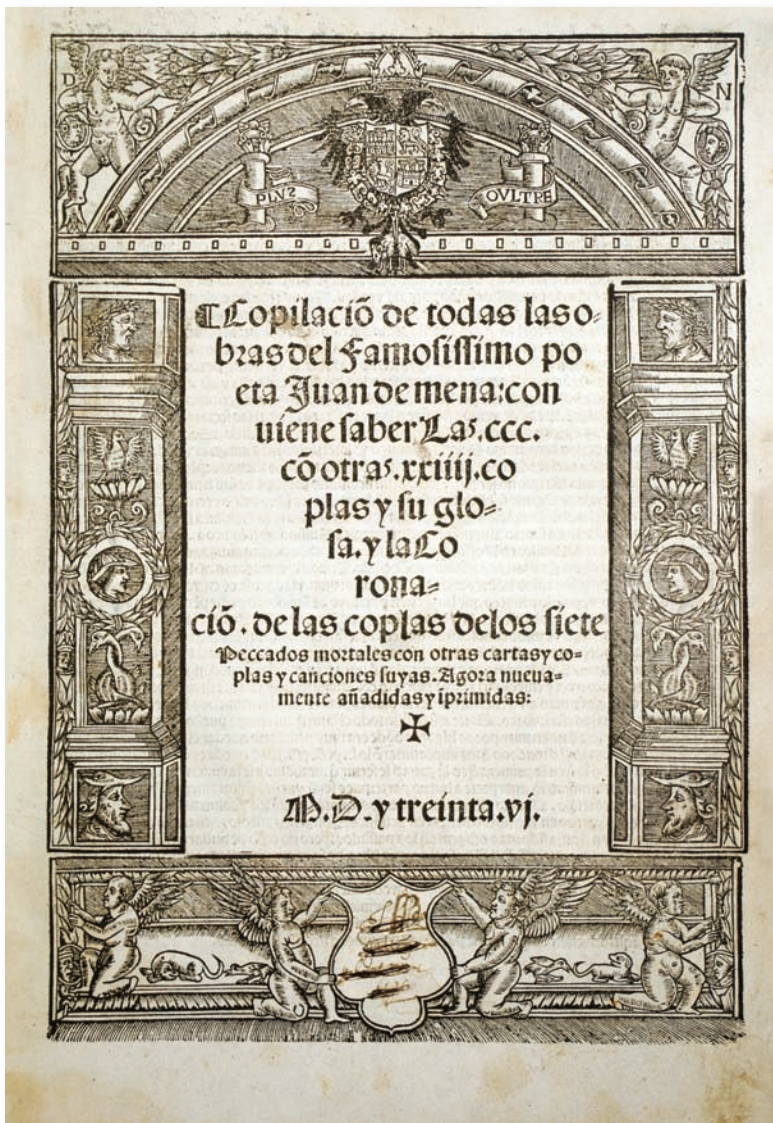 D N
PLVS OVLTRE
⁋Copilaciõ de todas las o-
bras del Famosissimo po
eta Juan de mena: con
uiene saber Las .ccc.
cõ otras .xxiiij. co
plas y su glo-
sa. y la Co
rona-
ciõ. de las coplas delos siete
Peccados mortales con otras cartas y co-
plas y canciones suyas. Agora nueua-
mente añadidas y ĩprimidas:
✠
M.D. y treinta .vj.